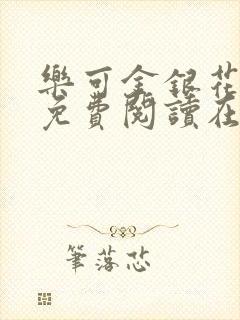 樂可金銀花
免費閱讀在
筆落芯